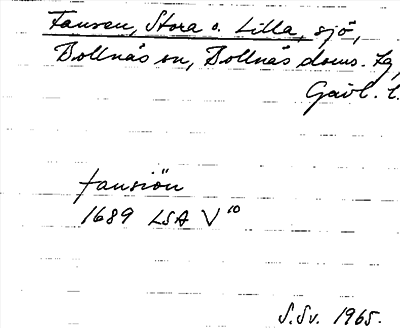 Fansen, Stora o. Lilla, sjö,
Bollnäs sn, Bollnäs doms. tg,
Gävl. l.
fansiön
1689 LSA V¹⁰
S.Sv. 1965.